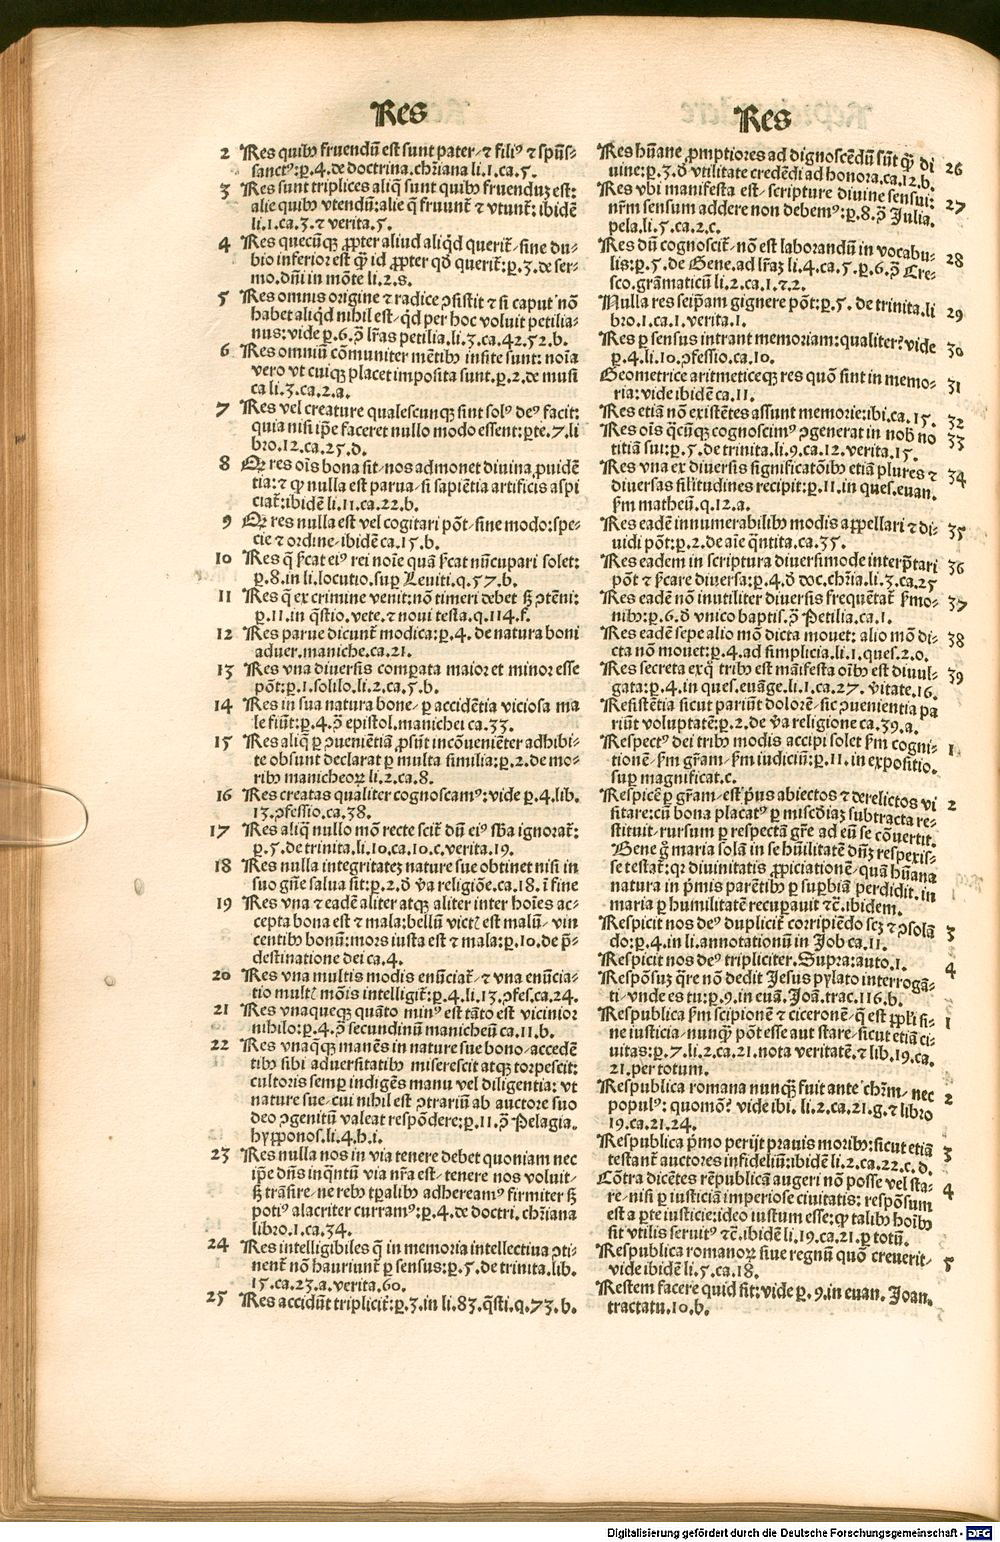 Res
2 Res quibꝰ fruendū est sunt pater ⁊ filiꝰ ⁊ spūs-
sanctꝰ:p̱.4.de doctrina.chr̄iana li.1.ca.5.
3 Res sunt triplices aliq̄ sunt quibꝰ fruenduʒ est:
alie quibꝰ vtendū:alie q̄ fruunt̄ ⁊ vtunt̄:ibidē
li.1.ca.3.⁊ verita.5.
4 Res quecūqʒ ꝓpter aliud aliq̇d querit̄ sine du-
bio inferior est qꝫ id ꝓpter qd̄ querit̄:p̱.3.de ser-
mo.dn̄i in mōte li.2.s.
5 Res omnis origine ⁊ radice ꝯsistit ⁊ si caput nō
habet aliq̇d nihil est q̇d per hoc voluit petilia-
nus:vide p̱.6.ꝯ̄ lr̄as petilia.li.3.ca.42.52.b.
6 Res omniū cōmuniter mētibꝰ insite sunt: noīa
vero vt cuiqʒ placet imposita sunt.p̱.2.de musi
ca li.3.ca.2.a.
7 Res vel creature qualescunqʒ sint solꝰ deꝰ facit:
quia nisi ip̄e faceret nullo modo essent:p̱te.7.li
bro.12.ca.25.d.
8 Qꝫ res oīs bona sit nos admonet diuina ꝓuidē
tia:⁊ ꝙ nulla est parua si sapiētia artificis aspi
ciat̄:ibidē li.11.ca.22.b.
9 Qꝫ res nulla est vel cogitari pōt sine modo:spe-
cie ⁊ ordine ibidē ca.15.b.
10 Res q̄ ẜcat eiꝰ rei noīe quā ẜcat nūcupari solet:
p̱.8.in li.locutio.sup̱ Leuiti.q.57.b.
11 Res q̄ ex crimine venit:nō timeri debet sꝫ ꝯtēni:
p̱.11.in q̄stio.vete.⁊ noui testa.q.114.f.
12 Res parue dicunt̄ modica:p̱.4. de natura boni
aduer.maniche.ca.21.
13 Res vna diuersis comp̱ata maior et minor esse
pōt:p̱.1.solilo.li.2.ca.5.b.
14 Res in sua natura bone p̱ accidētia viciosa ma
le fiūt:p̱.4.ꝯ̄ epistol.manichei ca.33.
15 Res aliq̄ p̱ ꝯueniētiā ꝓsūt incōueniēter adhibi-
te obsunt declarat p̱ multa similia:p̱.2.de mo-
ribꝰ manicheoꝝ li.2.ca.8.
16 Res creatas qualiter cognoscamꝰ:vide p̱.4.lib.
13.ꝯfessio.ca.38.
17 Res aliq̄ nullo mō recte scit̄ dū eiꝰ sb̄a ignorat̄:
p̱.5.de trinita.li.10.ca.10.c.verita.19.
18 Res nulla integritateʒ nature sue obtinet nisi in
suo gn̄e salua sit:p̱.2.ď v̄a religiōe.ca.18.ī fine
19 Res vna ⁊ eadē aliter atqʒ aliter inter hoīes ac-
cepta bona est ⁊ mala:bellū victꝭ est malū vin
centibꝰ bonū:mors iusta est ⁊ mala:p̱.10.de p̄-
destinatione dei ca.4.
20 Res vna multis modis enūciat̄ ⁊ vna enūcia-
tio multꝭ mōis intelligit̄:p̱.4.li.13.ꝯfes.ca.24.
21 Res vnaqueqʒ quāto minꝰ est tāto est vicinior
nihilo:p̱.4.ꝯ̄ secundinū manicheū ca.11.b.
22 Res vnaq̄qʒ manēs in nature sue bono accedē
tibꝰ sibi aduersitatibꝰ miserescit atqʒ torpescit:
cultoris semp̱ indigēs manu vel diligentia: vt
nature sue cui nihil est ꝯtrariū ab auctore suo
deo ꝯgenitū valeat respōdere:p̱.11.ꝯ̄ Pelagia.
hypponos.li.4.h.i.
23 Res nulla nos in via tenere debet quoniam nec
ip̄e dn̄s inq̄ntū via nr̄a est tenere nos voluit
sꝫ trāsire ne rebꝰ tp̱alibꝰ adhereamꝰ firmiter sꝫ
potiꝰ alacriter curramꝰ:p̱.4.de doctri.chr̄iana
libro.1.ca.34.
24 Res intelligibiles q̄ in memoria intellectiua ꝯti-
nent̄ nō hauriunt̄ p̱ sensus:p̱.5.de trinita.lib.
15.ca.23.a.verita.60.
25 Res accidūt triplicit̄:p̱.3.in li.83.q̄sti.q.73.b.
Res
Res hūane ꝓmptiores ad dignoscēdū sūt qꝫ di 26
uine:p̱.3.ď vtilitate credēdi ad honora.ca.12.b.
Res vbi manifesta est scripture diuine sensui: 27
nr̄m sensum addere non debemꝰ:p̱.8.ꝯ̄ Julia.
pela.li.5.ca.2.c.
Res dū cognoscit̄ nō est laborandū in vocabu- 28
lis:p̱.5.de Gene.ad lr̄aʒ li.4.ca.5.p̱.6.ꝯ̄ Cre-
sco.grāmaticū li.2.ca.1.⁊.2.
Nulla res seip̄am gignere pōt:p̱.5. de trinita.li 29
bro.1.ca.1.verita.1.
Res p̱ sensus intrant memoriam:qualiter?vide 30
p̱.4.li.10.ꝯfessio.ca.10.
Geometrice aritmeticeqʒ res quō sint in memo- 31
ria:vide ibidē ca.11.
Res etiā nō existētes assunt memorie:ibi.ca.15. 32
Res oīs q̄cūqʒ cognoscimꝰ ꝯgenerat in nob̄ no 33
titiā sui:p̱.5.de trinita.li.9.ca.12.verita.15.
Res vna ex diuersis significatōibꝰ etiā plures ⁊ 34
diuersas sil̄itudines recipit:p̱.11.in ques.euan.
ẜm matheū.q.12.a.
Res eadē innumerabilibꝰ modis appellari ⁊ di- 35
uidi pōt:p̱.2.de aīe q̄ntita.ca.35.
Res eadem in scriptura diuersimode interp̄tari 36
pōt ⁊ ẜcare diuersa:p̱.4.ď doc.chr̄ia.li.3.ca.25
Res eadē nō inutiliter diuersis frequētat̄ ẜmo- 37
nibꝰ:p̱.6.ď vnico baptis.ꝯ̄ Petilia.ca.1.
Res eadē sepe alio mō dicta mouet: alio mō di- 38
cta nō mouet:p̱.4.ad simplicia.li.1.ques.2.o.
Res secreta exq̇ tribꝰ est māifesta oībꝰ est diuul- 39
gata:p̱.4.in ques.euāge.li.1.ca.27. v̄itate.16.
Resistētia sicut pariūt dolorē sic ꝯuenientia pa
riūt voluptatē:p̱.2.de v̄a religione ca.39.a.
Respectꝰ dei tribꝰ modis accipi solet ẜm cogni- 1
tionē ẜm gr̄am ẜm iudiciū:p̱.11.in expositio.
sup̱ magnificat.c.
Respicē p̱ gr̄am est pⁱus abiectos ⁊ derelictos vi 2
sitare:cū bona placatꝰ p̱ misc̄diaʒ subtracta re-
stituit rursum p̱ respectā gr̄e ad eū se cōuertit.
Bene g̊ maria solā in se hūilitatē dn̄ʒ respexis-
se testat̄:qꝛ diuinitatis ꝓpiciationē quā hūana
natura in pⁱmis parētibꝰ p̱ sup̱biā perdidit.in
maria p̱ humilitatē recup̱auit ⁊c̄.ibidem.
Respicit nos deꝰ duplicit̄ corripiēdo scʒ ⁊ ꝯsolā 3
do:p̱.4.in li.annotationū in Job ca.11.
Respicit nos deꝰ tripliciter.Supra:auto.1. 4
Respōsuʒ q̄re nō dedit Jesus pylato interrogā-
ti vnde es tu:p̱.9.in euā.Joā.trac.116.b.
Respublica ẜm scipionē ⁊ ciceronē q̄ est ppl̄i si- 1
ne iusticia nunqꝫ pōt esse aut stare sicut etiā ci-
uitas:p̱.7.li.2.ca.21.nota veritatē.⁊ lib.19.ca.
21.per totum.
Respublica romana nunqꝫ fuit ante chr̄m nec 2
populꝰ: quomō? vide ibi. li.2.ca.21.g.⁊ libro
19.ca.21.24.
Respublica pⁱmo perijt prauis moribꝰ:sicut etiā 3
testant̄ auctores infideliū:ibidē li.2.ca.22.c.d.
Cōtra dicētes rēpublicā augeri nō posse vel sta- 4
re nisi p̱ iusticiā imperiose ciuitatis: respōsum
est a p̱te iusticie:ideo iustum esse:ꝙ talibꝰ hoībꝰ
sit vtilis seruitꝰ ⁊c̄.ibidē li.19.ca.21.p̱ totū.
Respublica romanoꝝ siue regnū quō creuerit 5
vide ibidē li.5.ca.18.
Restem facere quid sit:vide p̱.9.in euan. Joan.
tractatu.10.b.
Digitalisierung gefördert durch die Deutsche Forschungsgemeinschaft - DFG